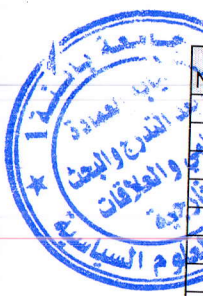 جامعة باتنة 1
نيابة العمادة
بعد التدرج والبحث
العلمي والعلاقات
الخارجية
العلوم السياسية